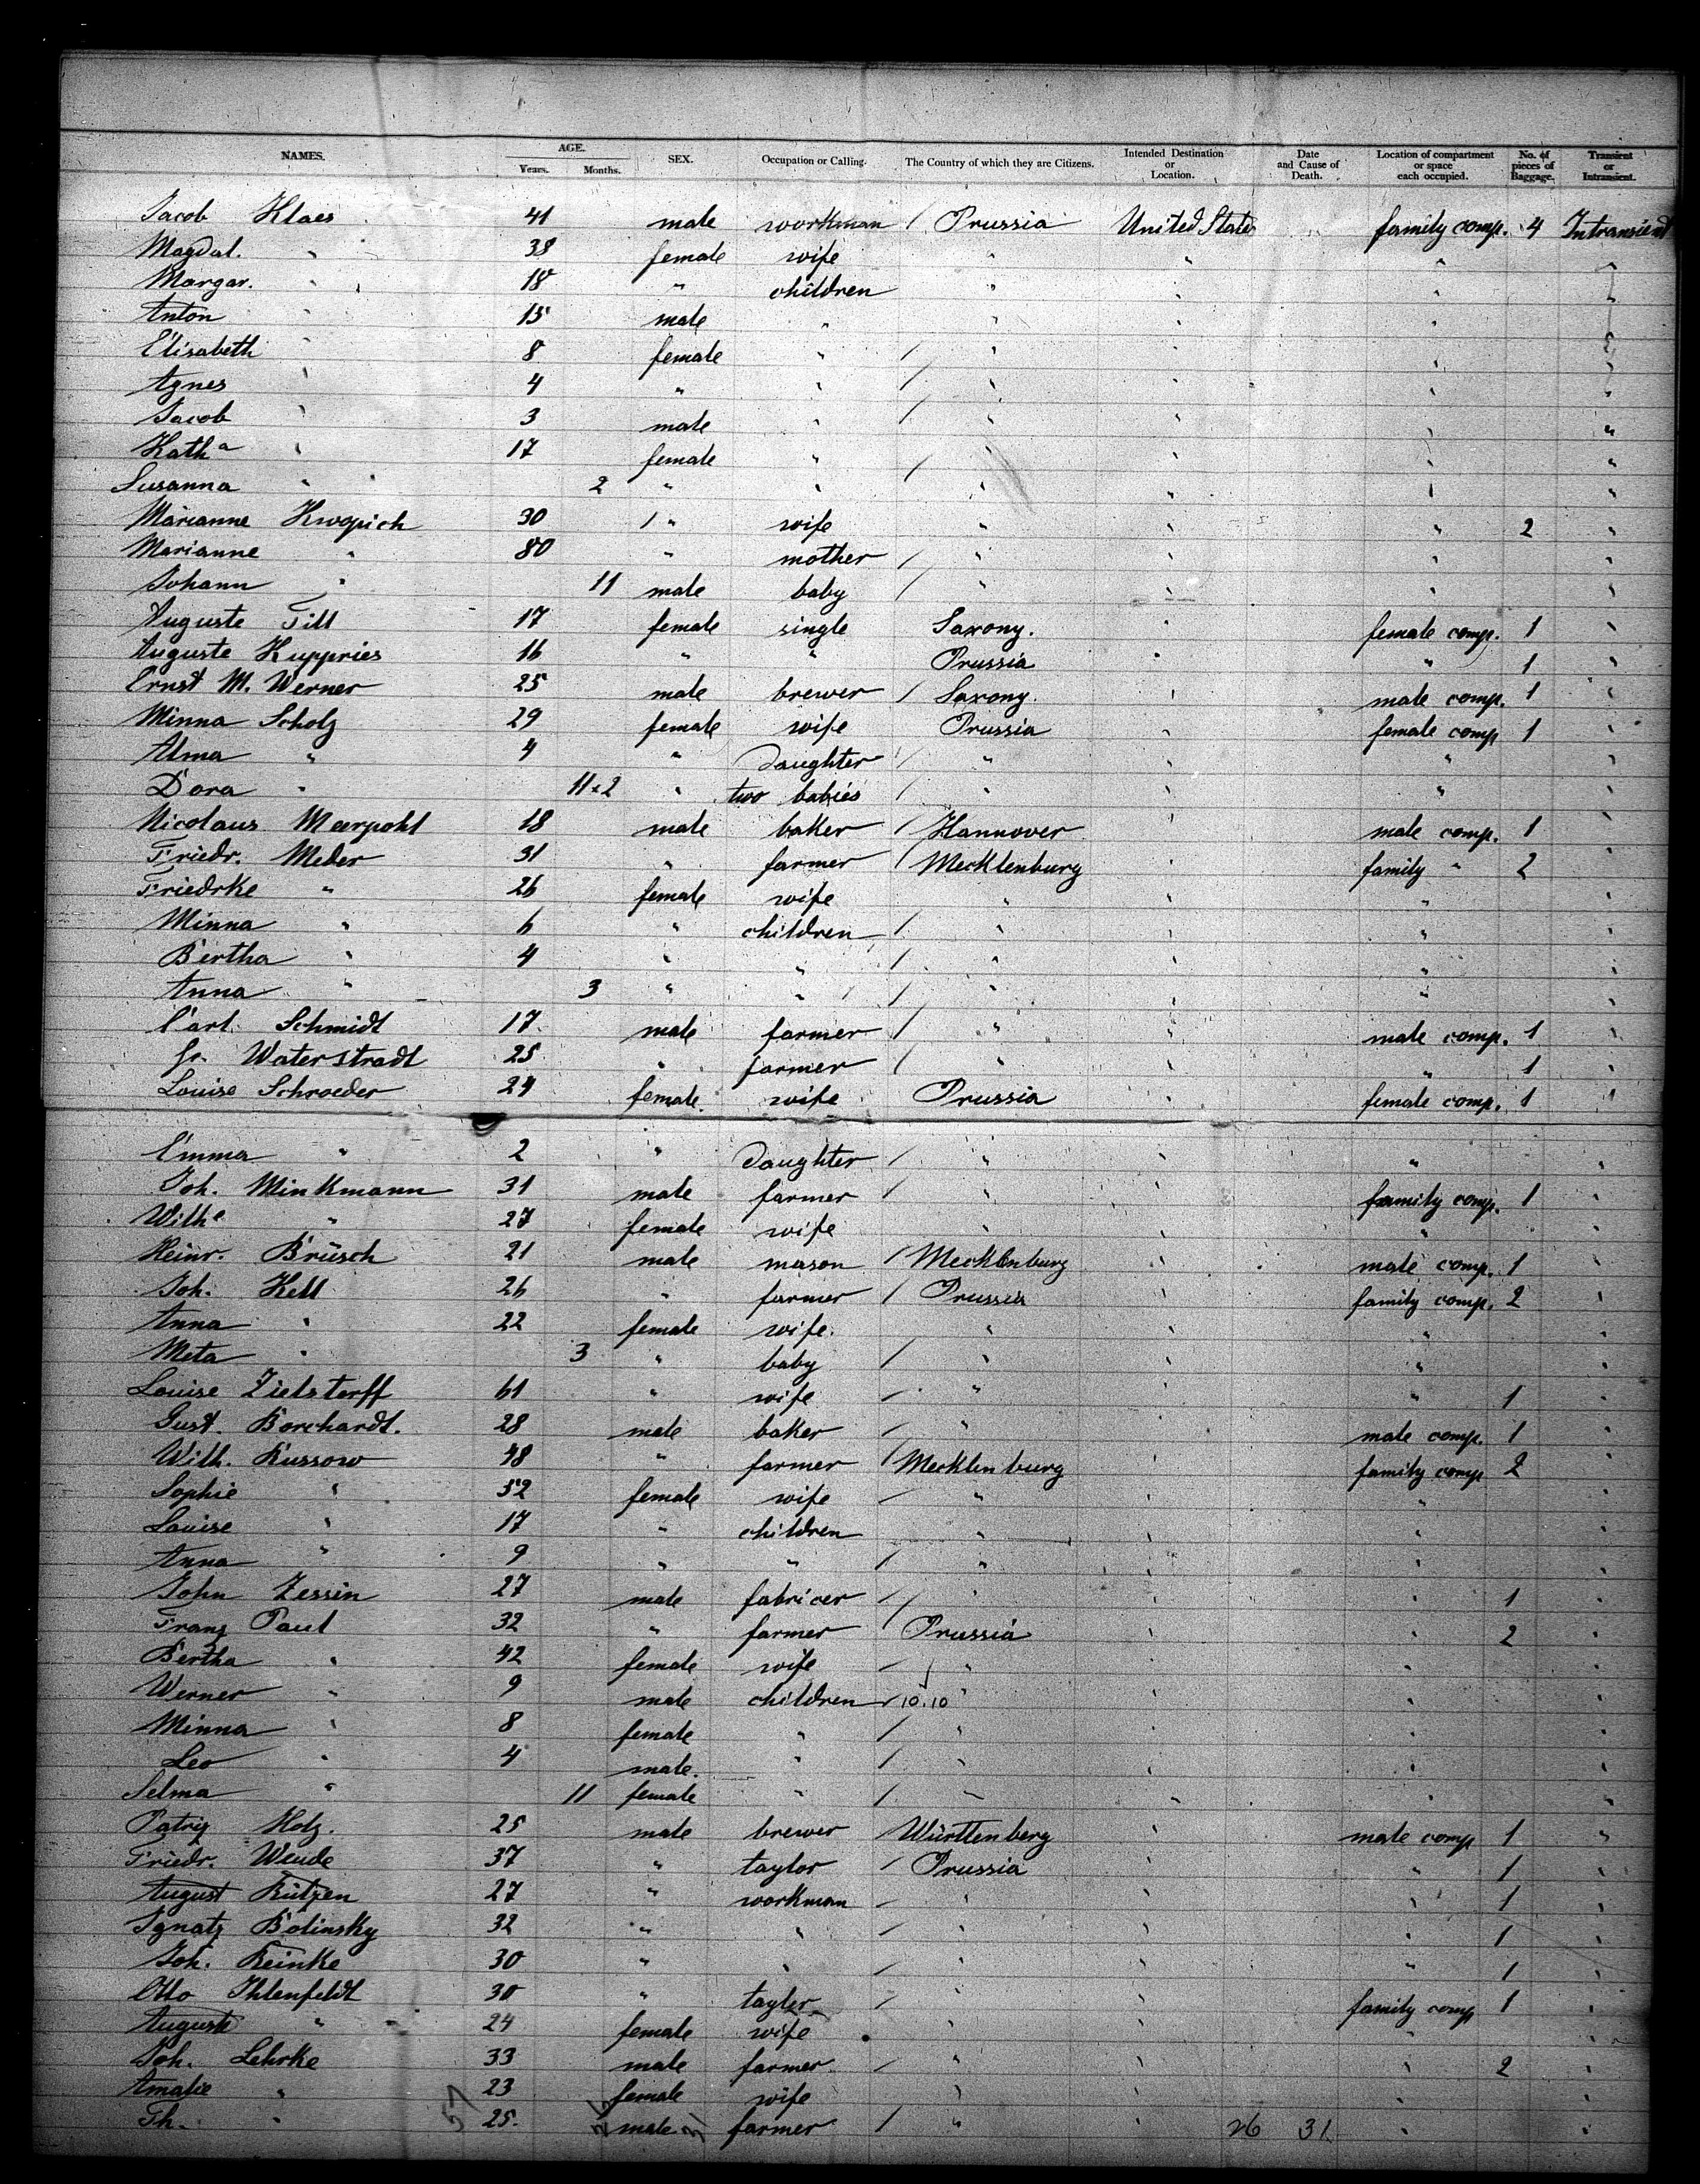 NAMES. AGE. Years. Months. SEX. Occupation or Calling. The Country of which they are Citizens. Intended Destination or Location. Date and Cause of Death. Location of compartment or space each occupied. No. of pieces of Baggage. Transient or Intransient.
Jacob Klaes 41 male workman / Prussia United States family comp. 4 Intransient
Magdal. " 38 female wife " " " "
Margar. " 18 " children " " " "
Anton " 15 male " " " " "
Elisabeth " 8 female " / " " " "
Agnes " 4 " " / " " " "
Jacob " 3 male " / " " " "
Kath a " 17 female " / " " " "
Susanna " 2 " " " " " "
Marianne Kwopich 30 / " wife " " " 2 "
Marianne " 80 " mother / " " " "
Johann " 11 male baby / " " " "
Auguste Till 17 female single Saxony. " female comp. 1 "
Auguste Kuppries 16 " " Prussia " " 1 "
Ernst M. Werner 25 male brewer / Saxony. " male comp. 1 "
Minna Scholz 29 female wife Prussia " female comp 1 "
Alma " 4 " Daughter / " " " "
Dora " 11 & 2 " two babies / " " " "
Nicolaus Meerpohl 18 male baker / Hannover " male comp. 1 "
Friedr. Meder 31 " farmer / Mecklenburg " family " 2 "
Friedrke " 26 female wife " " " "
Minna " 6 " children / " " " "
Bertha " 4 " " / " " " "
Anna " 3 " " / " " " "
Carl Schmidt 17 male farmer / " " male comp. 1 "
Fr. Waterstradt 25 " farmer / " " " 1 "
Louise Schroeder 24 female wife Prussia " female comp. 1 "
Emma " 2 " Daughter / " " " "
Joh. Minkmann 31 male farmer / " " family comp. 1 "
Wilh e " 27 female wife " " " "
Heinr. Brüsch 21 male mason / Mecklenburg " male comp. 1 "
Joh. Kell 26 " farmer / Prussia " family comp. 2 "
Anna " 22 female wife. " " " "
Meta " 3 " baby / " " " "
Louise Zielstorff 61 " wife / " " " 1 "
Gust. Borchardt. 28 male baker / " " male comp. 1 "
Wilh. Russow 48 " farmer / Mecklenburg " family comp 2 "
Sophie " 52 female wife / " " " "
Louise " 17 " children " " " "
Anna " 9 " " / " " " "
John Zessin 27 male fabricer / " " " 1 "
Franz Paul 32 " farmer / Prussia " " 2 "
Bertha " 42 female wife / " " " "
Werner " 9 male children / 10.10 " " " "
Minna " 8 female " / " " " "
Leo " 4 male. " / " " " "
Selma " 11 female " / " " " "
Patriz Holz. 25 male brewer Württenberg " male comp 1 "
Friedr. Wende 37 " taylor / Prussia " " 1 "
August Rützen 27 " workman / " " " 1 "
Ignatz Bolinsky 32 " " / " " " 1 "
Joh. Reinke 30 " " / " " " 1 "
Otto Ihlenfeldt 30 " tayler / " " family comp 1 "
Auguste " 24 female wife " " " "
Joh. Lehrke 33 male farmer / " " " 2 "
Amalie " 23 female wife " " " "
Th. " 25. male farmer / " " 26 31 " "
57 26 31